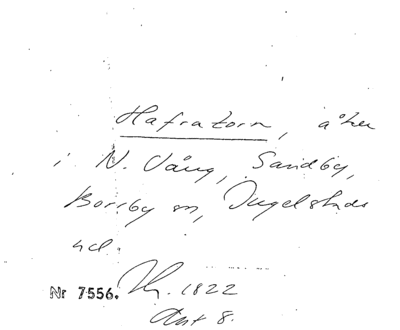 Hafratorn, åker
i N. Vång, Sandby,
Borrby sn, Ingelstads
hd.
Nr 7556. 1822
Akt 8.